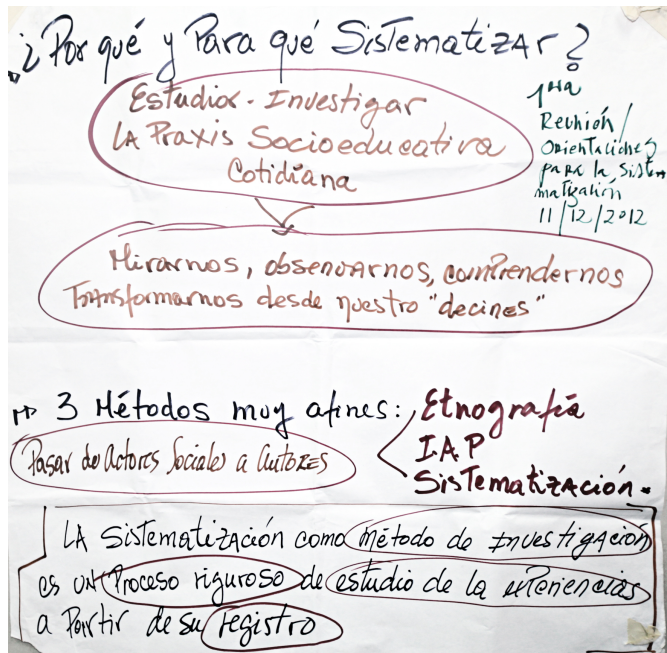 ¿Por qué y Para qué SistematizAr?
Estudiar - Investigar
LA Praxis Socioeducativa
Cotidiana
1ra
Reunión/
Orientaciones
para la Siste-
matización
11/12/2012
Mirarnos, observarnos, comprendernos
Transformarnos desde nuestro "decires"
3 Métodos muy afines:
Etnografía
I.A.P
SistematizAción.
Pasar de Actores Sociales a AutorES
LA SistematizAción como método de InvestigAción
es un Proceso riguroso de estudio de la experiencias
a Partir de su registro